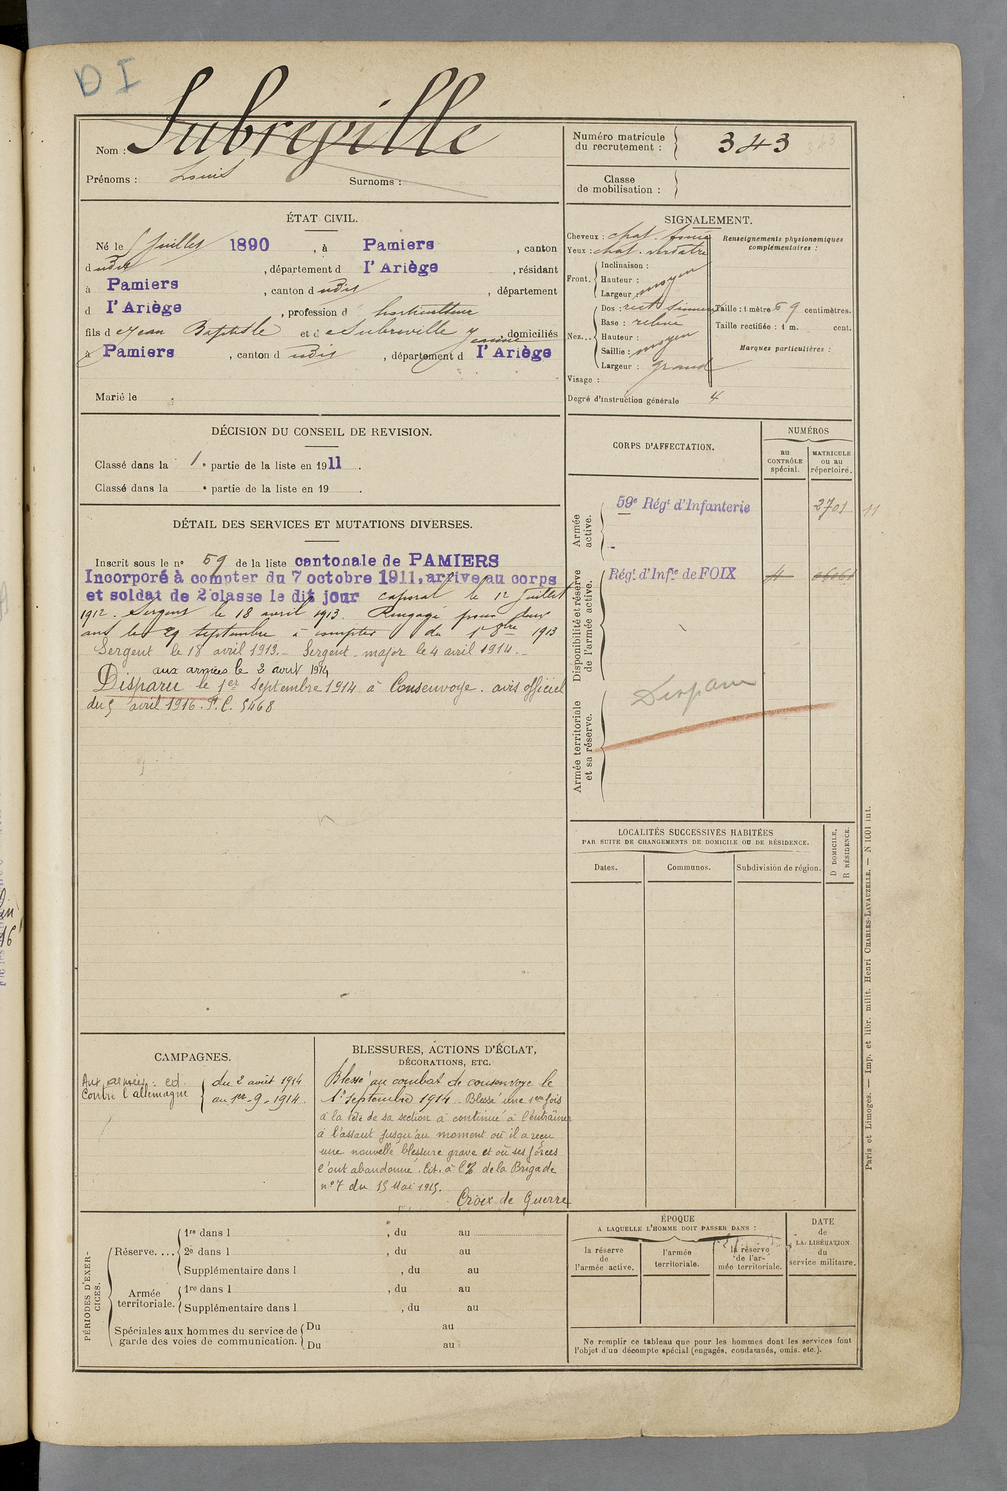 D I
Nom : Subreville
Prénoms : Louis Surnoms :
Numéro matricule
du recrutement : 343
Classe
de mobilisation :
ÉTAT CIVIL.
Né le 5 Juillet 1890, à Pamiers, canton
d udit, département d l'Ariège, résidant
à Pamiers, canton d udit, département
d l'Ariège, profession d horticulteur
fils d e Jean Baptiste et d e Subreville Jeanne, domiciliés
à Pamiers, canton d udit, département d l'Ariège
Marié le
SIGNALEMENT.
Cheveux : chat. foncé
Yeux : chat. verdâtre
Front.
Inclinaison :
Hauteur :
Largeur : moyen
Nez...
Dos : rect. sinueux
Base : relevé
Hauteur :
Saillie : moyen
Largeur : grand
Visage :
Degré d'instruction générale 4
Renseignements physionomiques
complémentaires :
Taille : 1 mètre 69 centimètres.
Taille rectifiée : 1 m. cent.
Marques particulières :
DÉCISION DU CONSEIL DE REVISION.
Classé dans la 1 e partie de la liste en 1911.
Classé dans la e partie de la liste en 19 .
DÉTAIL DES SERVICES ET MUTATIONS DIVERSES.
Inscrit sous le n° 59 de la liste cantonale de PAMIERS
Incorporé à compter du 7 octobre 1911, arrivé au corps
et soldat de 2e classe le dit jour caporal le 12 Juillet
1912. Sergent le 18 avril 1913. Rengagé pour deux
ans le 29 septembre à compter du 1er 8bre 1913
Sergent le 18 avril 1913. - Sergent major le 4 avril 1914. -
aux armées le 2 août 1914
Disparu le 1er Septembre 1914 à Consenvoye. avis officiel
du 5 avril 1916. P.C. 5468
CORPS D'AFFECTATION.
NUMÉROS
au
CONTRÔLE
spécial.
MATRICULE
ou au
répertoire.
Armée
active.
59e Régt d'Infanterie 2701 11
Disponibilité et réserve
de l'armée active.
Régt d'Infie de FOIX
Armée territoriale
et sa réserve.
Disparu
LOCALITÉS SUCCESSIVES HABITÉES
PAR SUITE DE CHANGEMENTS DE DOMICILE OU DE RÉSIDENCE.
Dates.
Communes.
Subdivision de région.
D DOMICILE,
R RÉSIDENCE.
CAMPAGNES.
Aux armées : ed. du 2 août 1914
Contre l'allemagne au 1er-9-1914.
BLESSURES, ACTIONS D'ÉCLAT,
DÉCORATIONS, ETC.
Blessé au combat de consenvoye le
1er septembre 1914. Blessé une 1ere fois
à la tête de sa section a continué à l'entraîner
à l'assaut jusqu'au moment où il a reçu
une nouvelle blessure grave et où ses forces
l'ont abandonné. Cit. à l'O. de la Brigade
n°7 du 15 Mai 1915.
Croix de Guerre
PÉRIODES D'EXER-
CICES.
Réserve....
1re dans l , du au
2e dans l , du au
Supplémentaire dans l , du au
Armée
territoriale.
1re dans l , du au
Supplémentaire dans l , du au
Spéciales aux hommes du service de
garde des voies de communication.
Du au
Du au
ÉPOQUE
A LAQUELLE L'HOMME DOIT PASSER DANS :
la réserve
de
l'armée active.
l'armée
territoriale.
la réserve
de l'ar-
mée territoriale.
DATE
de
LA LIBÉRATION
du
service militaire.
Ne remplir ce tableau que pour les hommes dont les services font
l'objet d'un décompte spécial (engagés, condamnés, omis, etc.).
Paris et Limoges. — Imp. et libr. milit. Henri CHARLES-LAVAUZELLE. — N 1001 int.